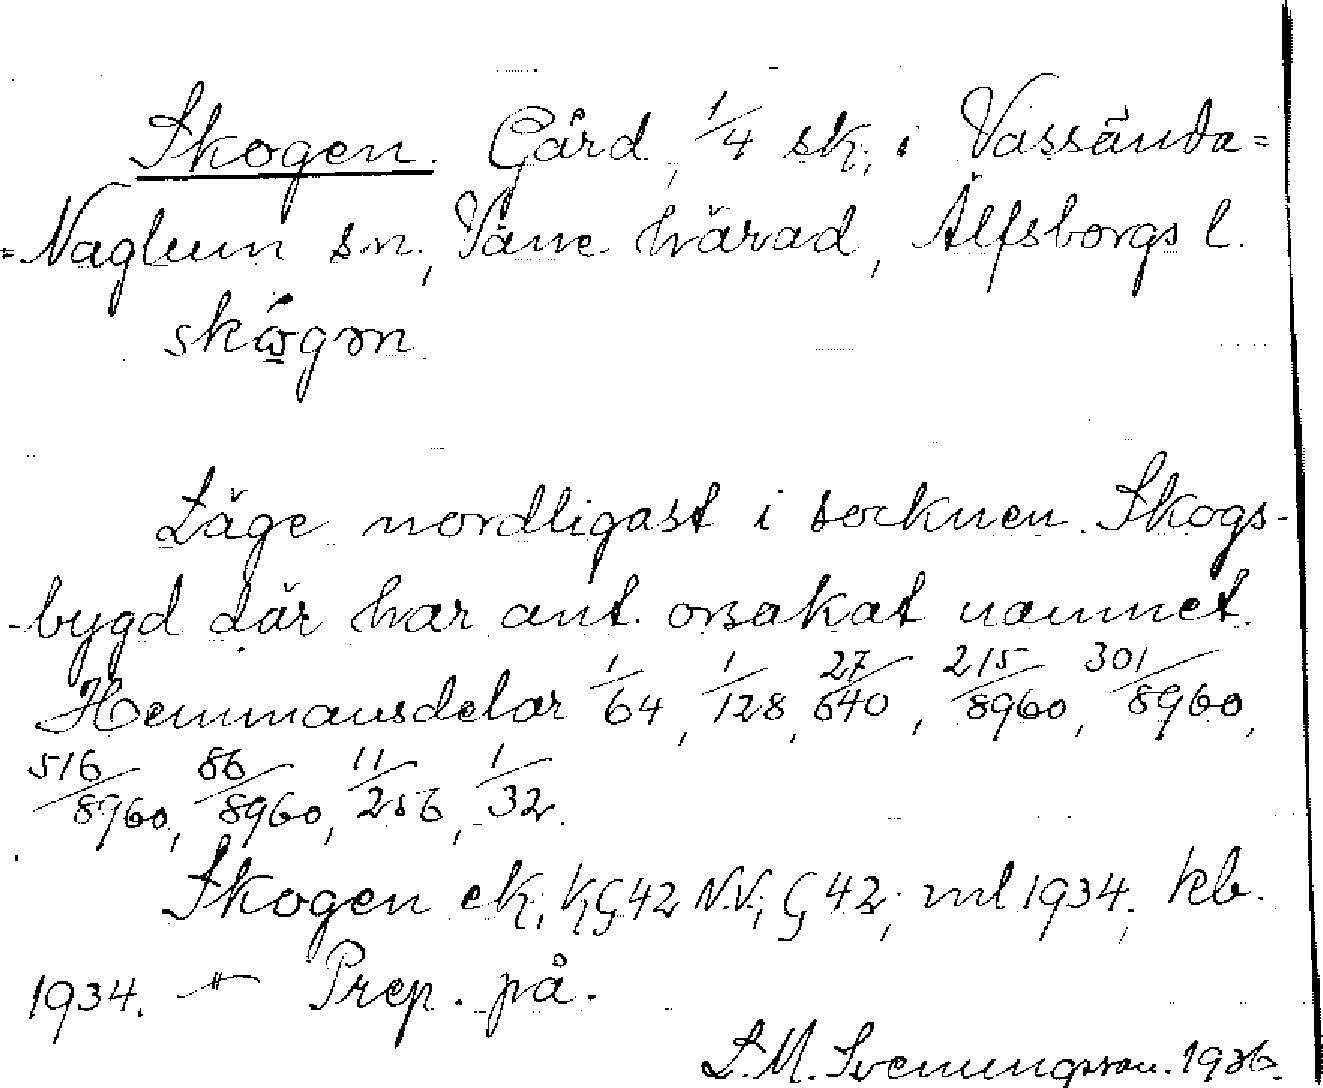 Skogen. Gård, 1/4 sk, i Vassända=
=Naglum sn, Väne härad, Älfsborgs l.
Läge nordligast i socknen. Skogs-
-bygd där har ant. orsakat namnet.
Hemmansdelar 1/64, 1/128, 27/640, 215/8960, 301/8960,
516/8960, 86/8960, 11/256, 1/32.
Skogen ek, kG42 N.V., G 42, ml 1934, kb.
1934. — Prep. på.
L.M. Svenungsson. 1936.